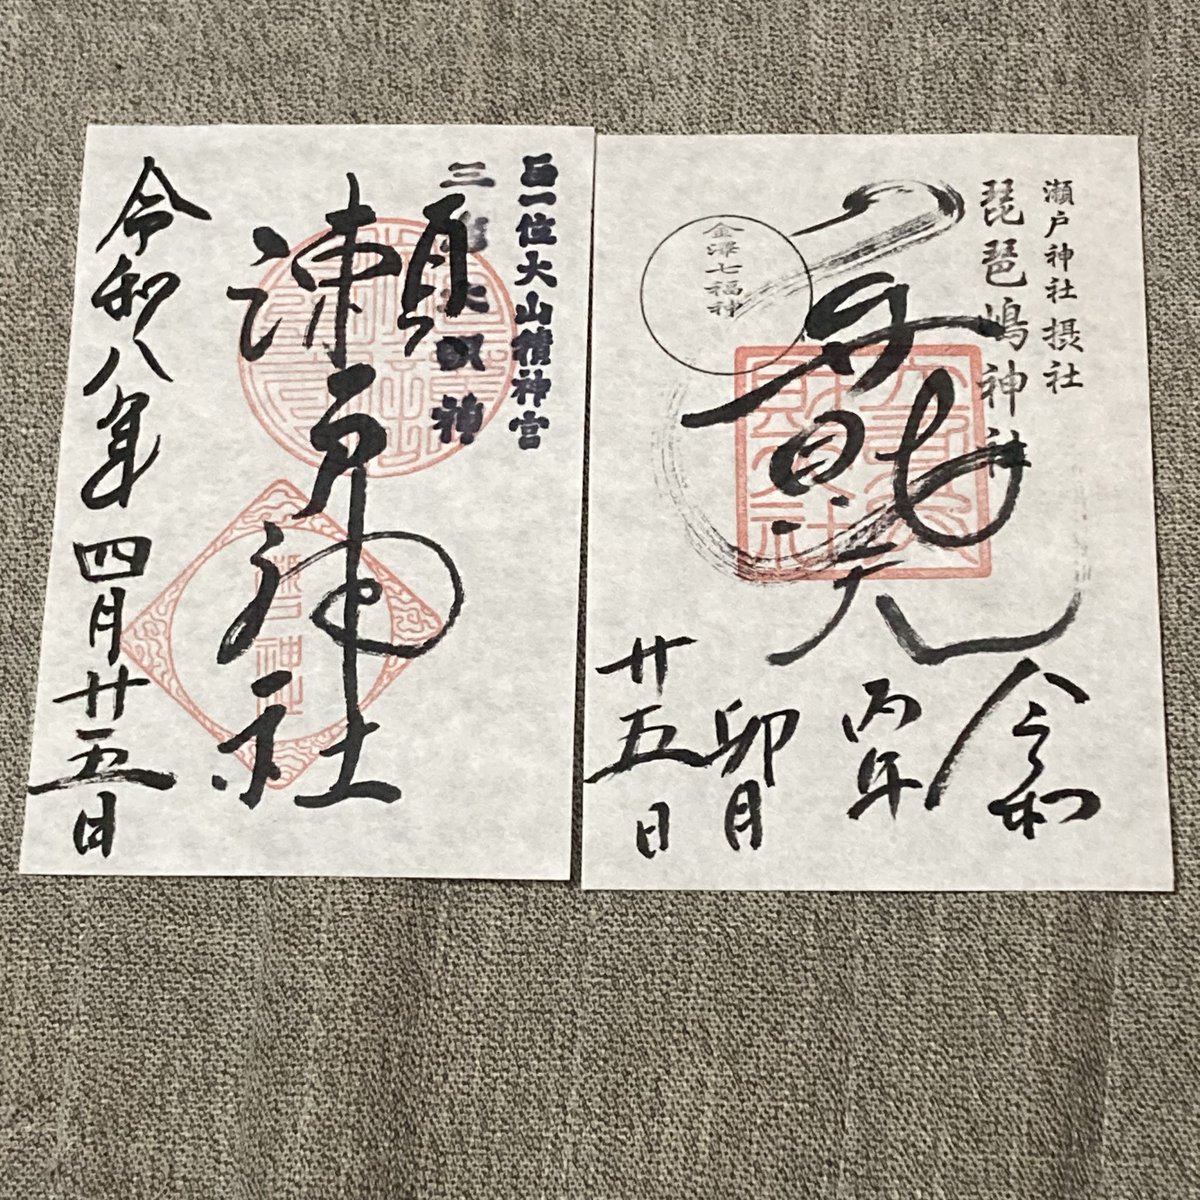 正一位大山積神宮
瀬戸神社
令和八年四月廿五日
瀬戸神社摂社
琵琶嶋神社
金澤七福神
弁財天
令和
丙午
卯月
廿五日